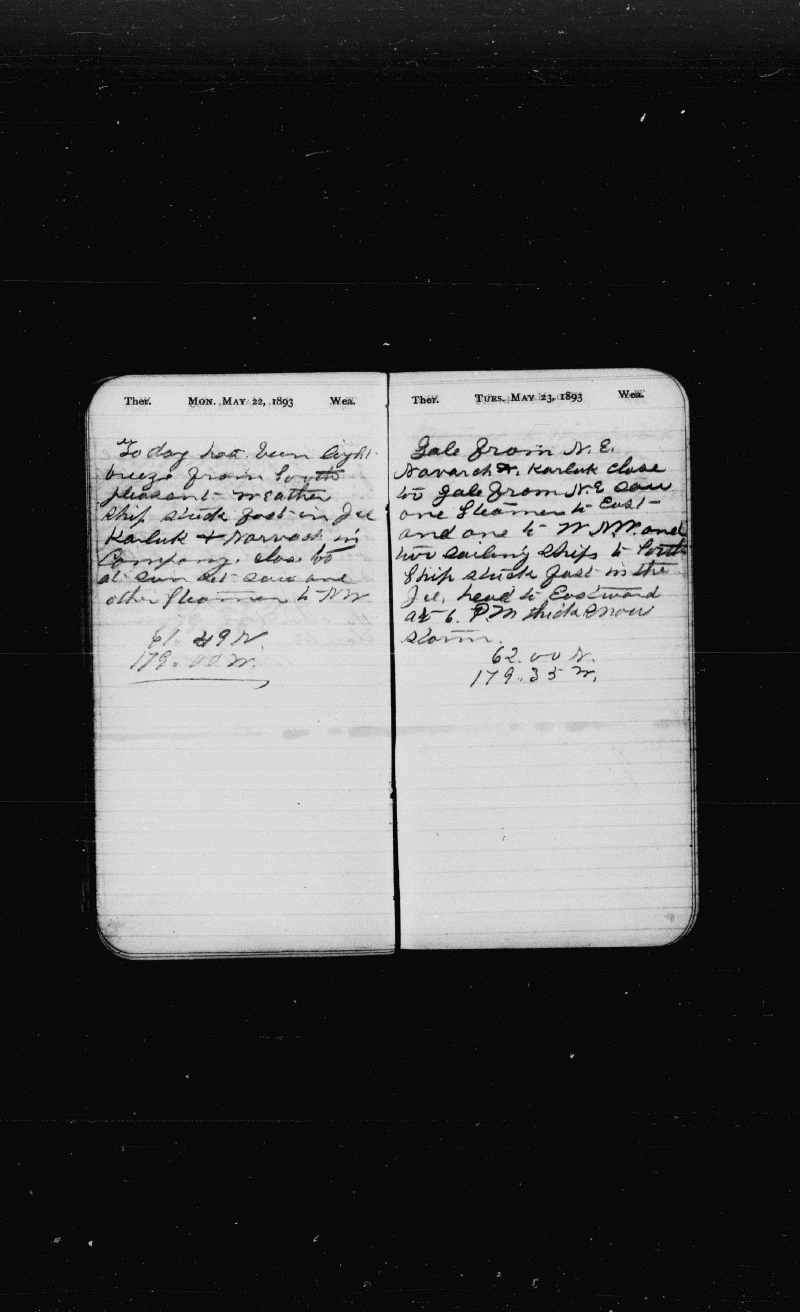 Ther. Mon. May 22, 1893 Wea.
To day has been light
breeze from South
pleasant weather
Ship stuck fast in Ice
Karluk & Narvach in
Company. close to
at sun set saw one
other Steamer to NW
61. 49 N
179. 00 W.
Ther. Tues. May 23, 1893 Wea.
Gale from N. E.
Navarch & Karluk close
to Gale from N.E saw
one Steamer to East
and one to W.N.W. and
two sailing Ships to South
Ship stuck fast in the
Ice, head to Eastward
at 6. P.M thick snow
storm.
62. 00 N.
179. 35 W.